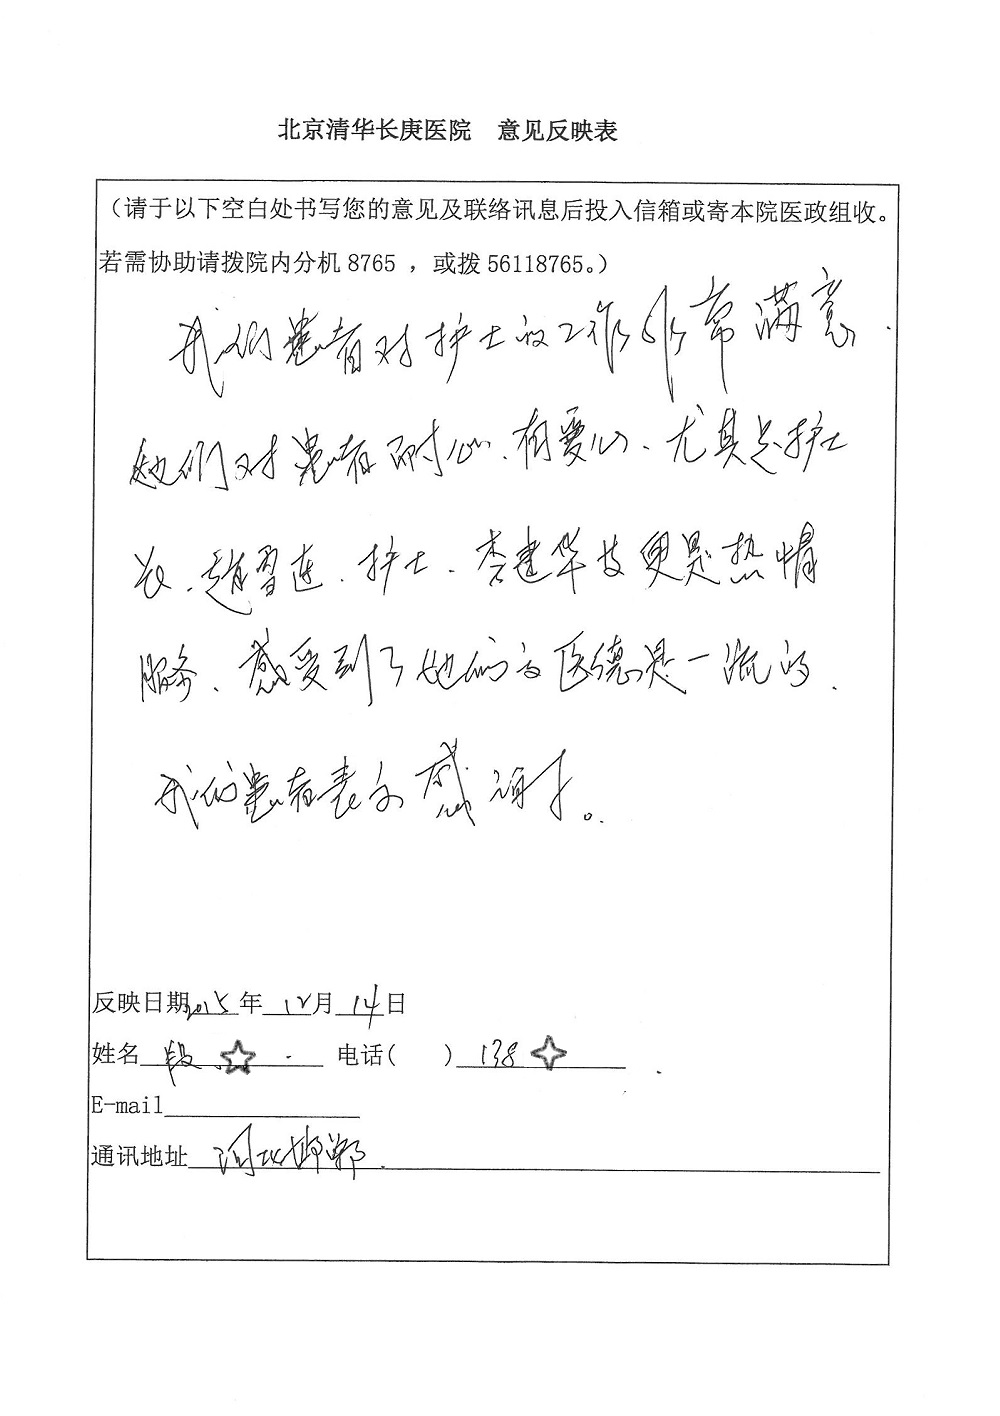 北京清华长庚医院 意见反映表
（请于以下空白处书写您的意见及联络讯息后投入信箱或寄本院医政组收。
若需协助请拨院内分机8765 ，或拨56118765。）
我们患者对护士的工作非常满意.
她们对患者耐心、有爱心、尤其是护士
长、赵 连、护士、李建华 更是热情
服务、感受到了她们的医德是一流的.
我们患者表示感谢。
反映日期2015年12月14日
姓名 段 电话( ) 138
E-mail
通讯地址 河北邯郸.